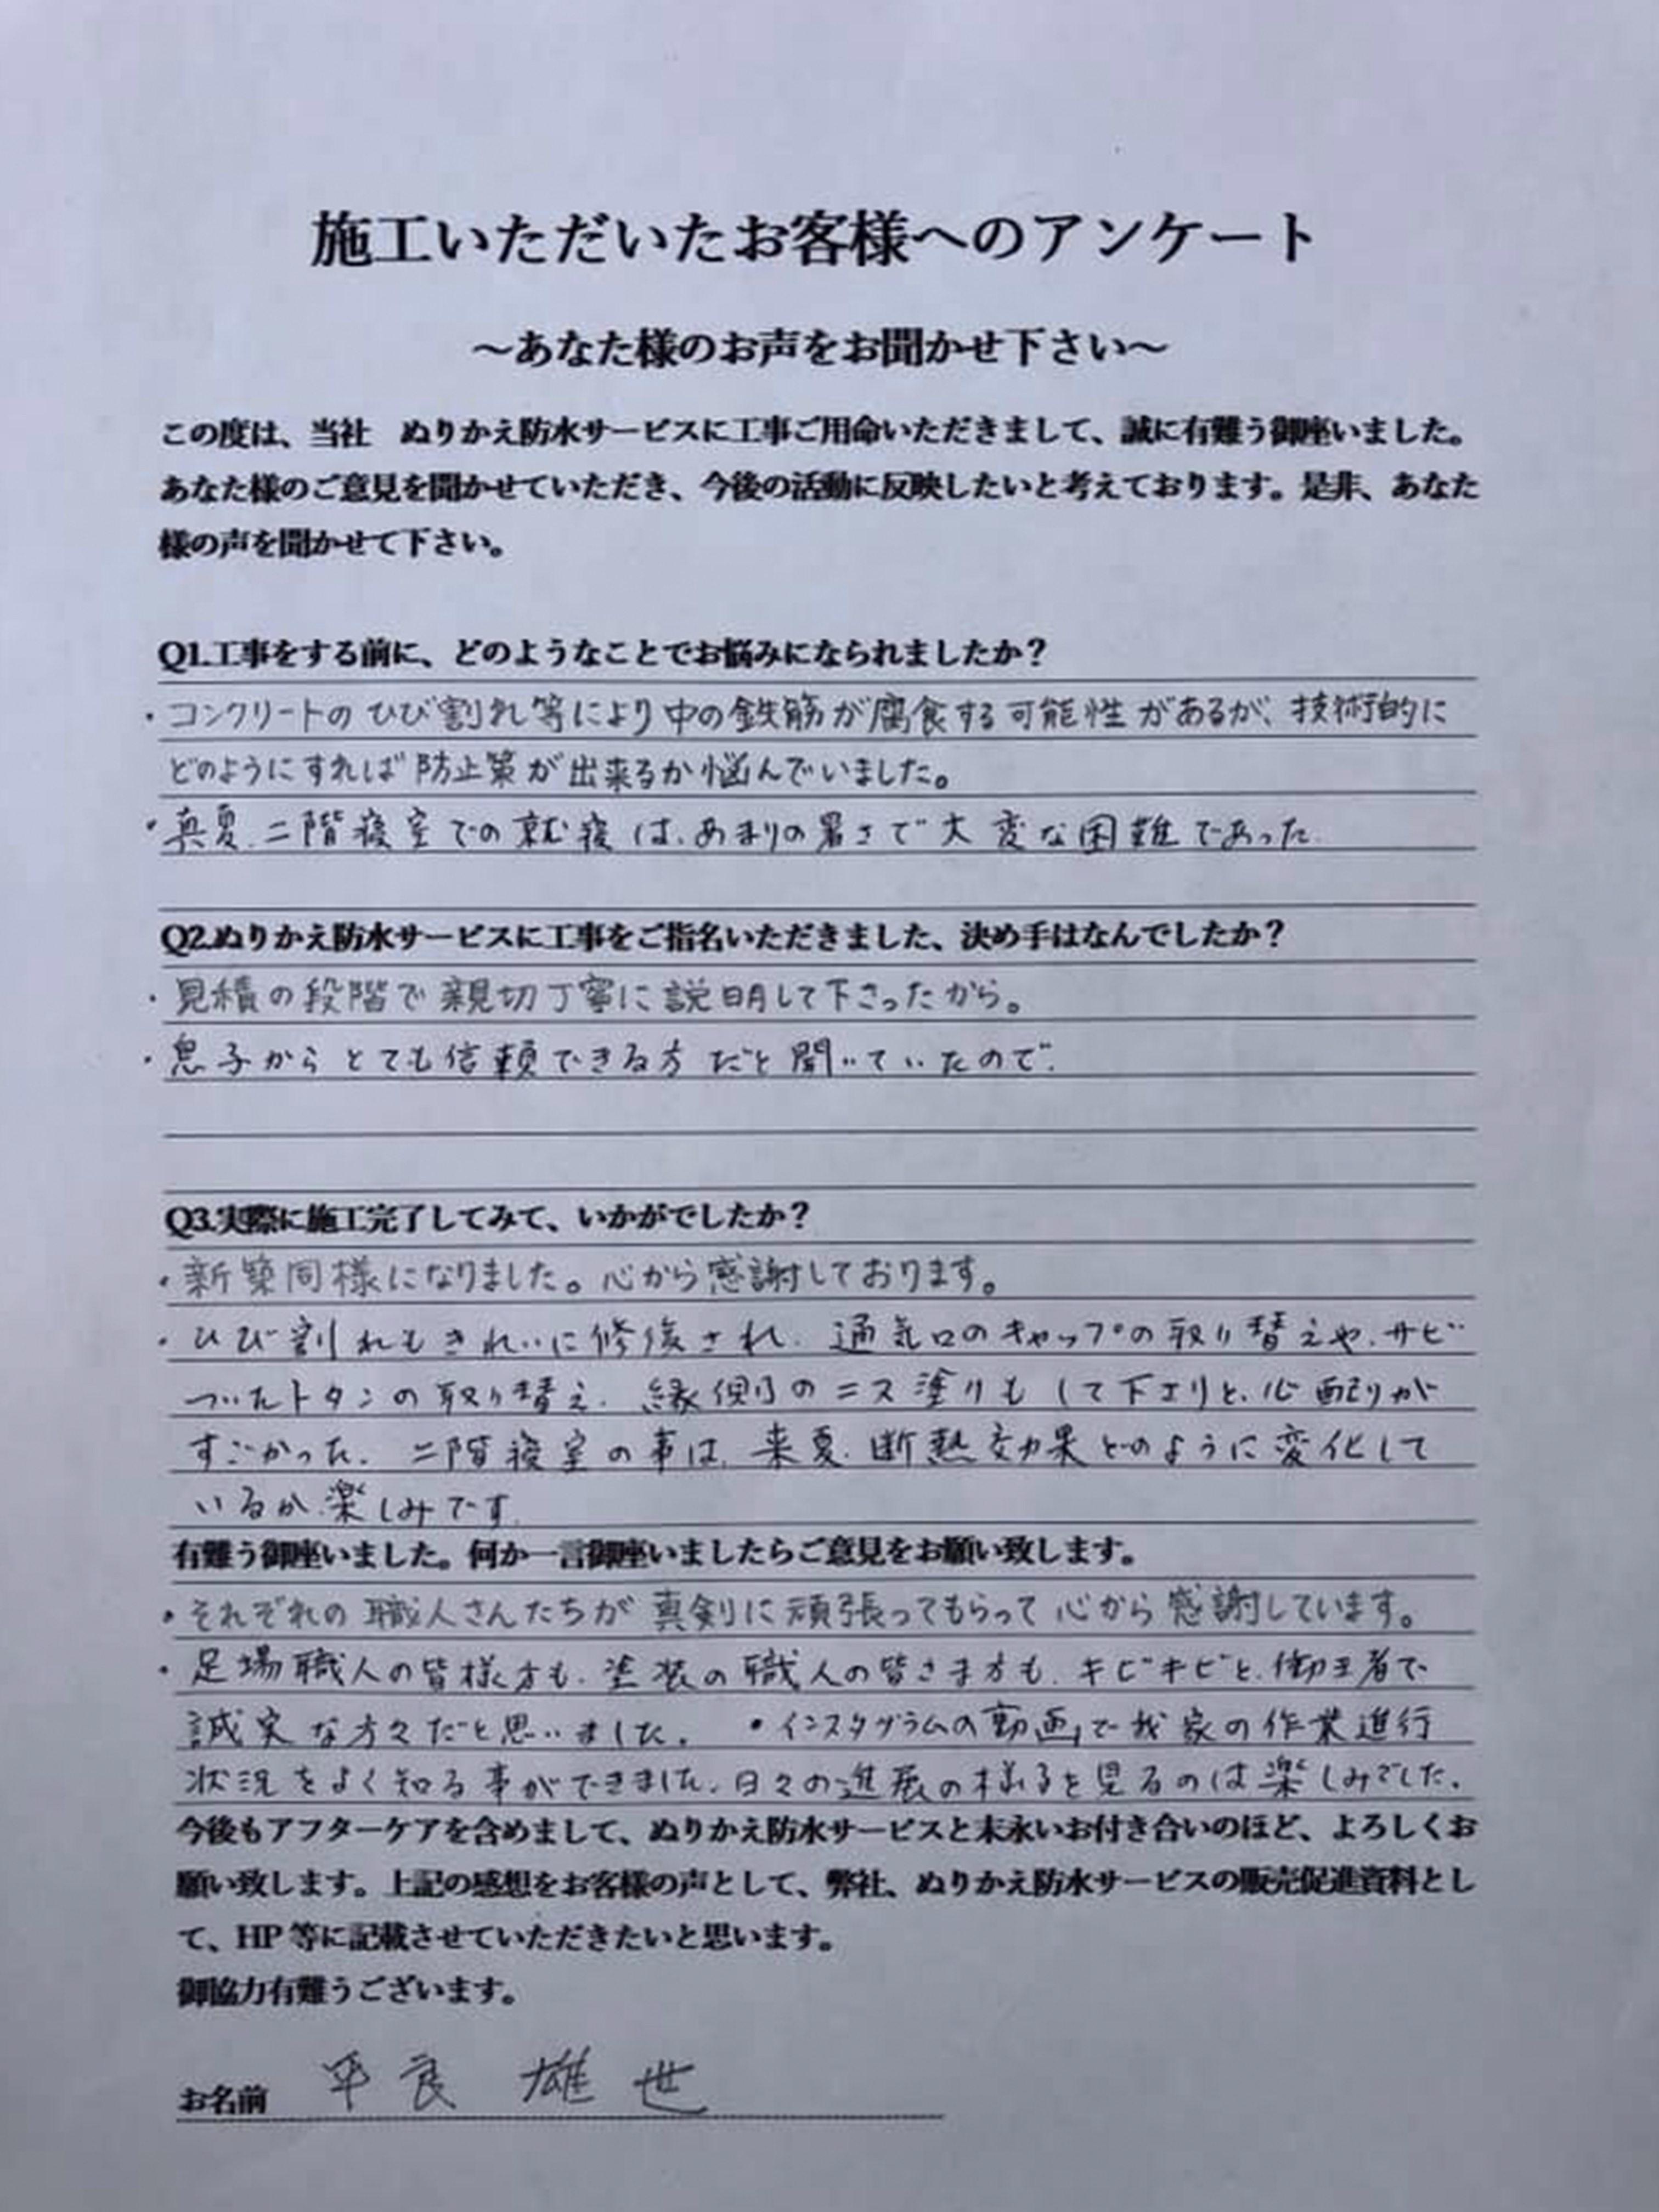 施工いただいたお客様へのアンケート
～あなた様のお声をお聞かせ下さい～
この度は、当社　ぬりかえ防水サービスに工事ご用命いただきまして、誠に有難う御座いました。
あなた様のご意見を聞かせていただき、今後の活動に反映したいと考えております。是非、あなた
様の声を聞かせて下さい。
Q1.工事をする前に、どのようなことでお悩みになられましたか？
・コンクリートのひび割れ等により中の鉄筋が腐食する可能性があるが、技術的に
どのようにすれば防止策が出来るか悩んでいました。
・真夏、二階寝室での就寝は、あまりの暑さで大変な困難であった.
Q2.ぬりかえ防水サービスに工事をご指名いただきました、決め手はなんでしたか？
・見積の段階で親切丁寧に説明して下さったから。
・息子からとても信頼できる方だと聞いていたので.
Q3.実際に施工完了してみて、いかがでしたか？
・新築同様になりました。心から感謝しております。
・ひび割れもきれいに修復され、通気口のキャップの取り替えや、サビ
ついたトタンの取り替え、縁側のニス塗りもして下さりと、心配りが
すごかった. 二階寝室の事は、来夏、断熱効果どのように変化して
いるか、楽しみです.
有難う御座いました。何か一言御座いましたらご意見をお願い致します。
・それぞれの職人さんたちが真剣に頑張ってもらって心から感謝しています。
・足場職人の皆様方も、塗装の職人の皆さま方も、キビキビと、働き者で
誠実な方々だと思いました. ・インスタグラムの「動画」で我家の作業進行
状況をよく知る事ができました. 日々の進展の様子を見るのは楽しみでした.
今後もアフターケアを含めまして、ぬりかえ防水サービスと末永いお付き合いのほど、よろしくお
願い致します。上記の感想をお客様の声として、弊社、ぬりかえ防水サービスの販売促進資料とし
て、HP 等に記載させていただきたいと思います。
御協力有難うございます。
お名前　平良 雄世